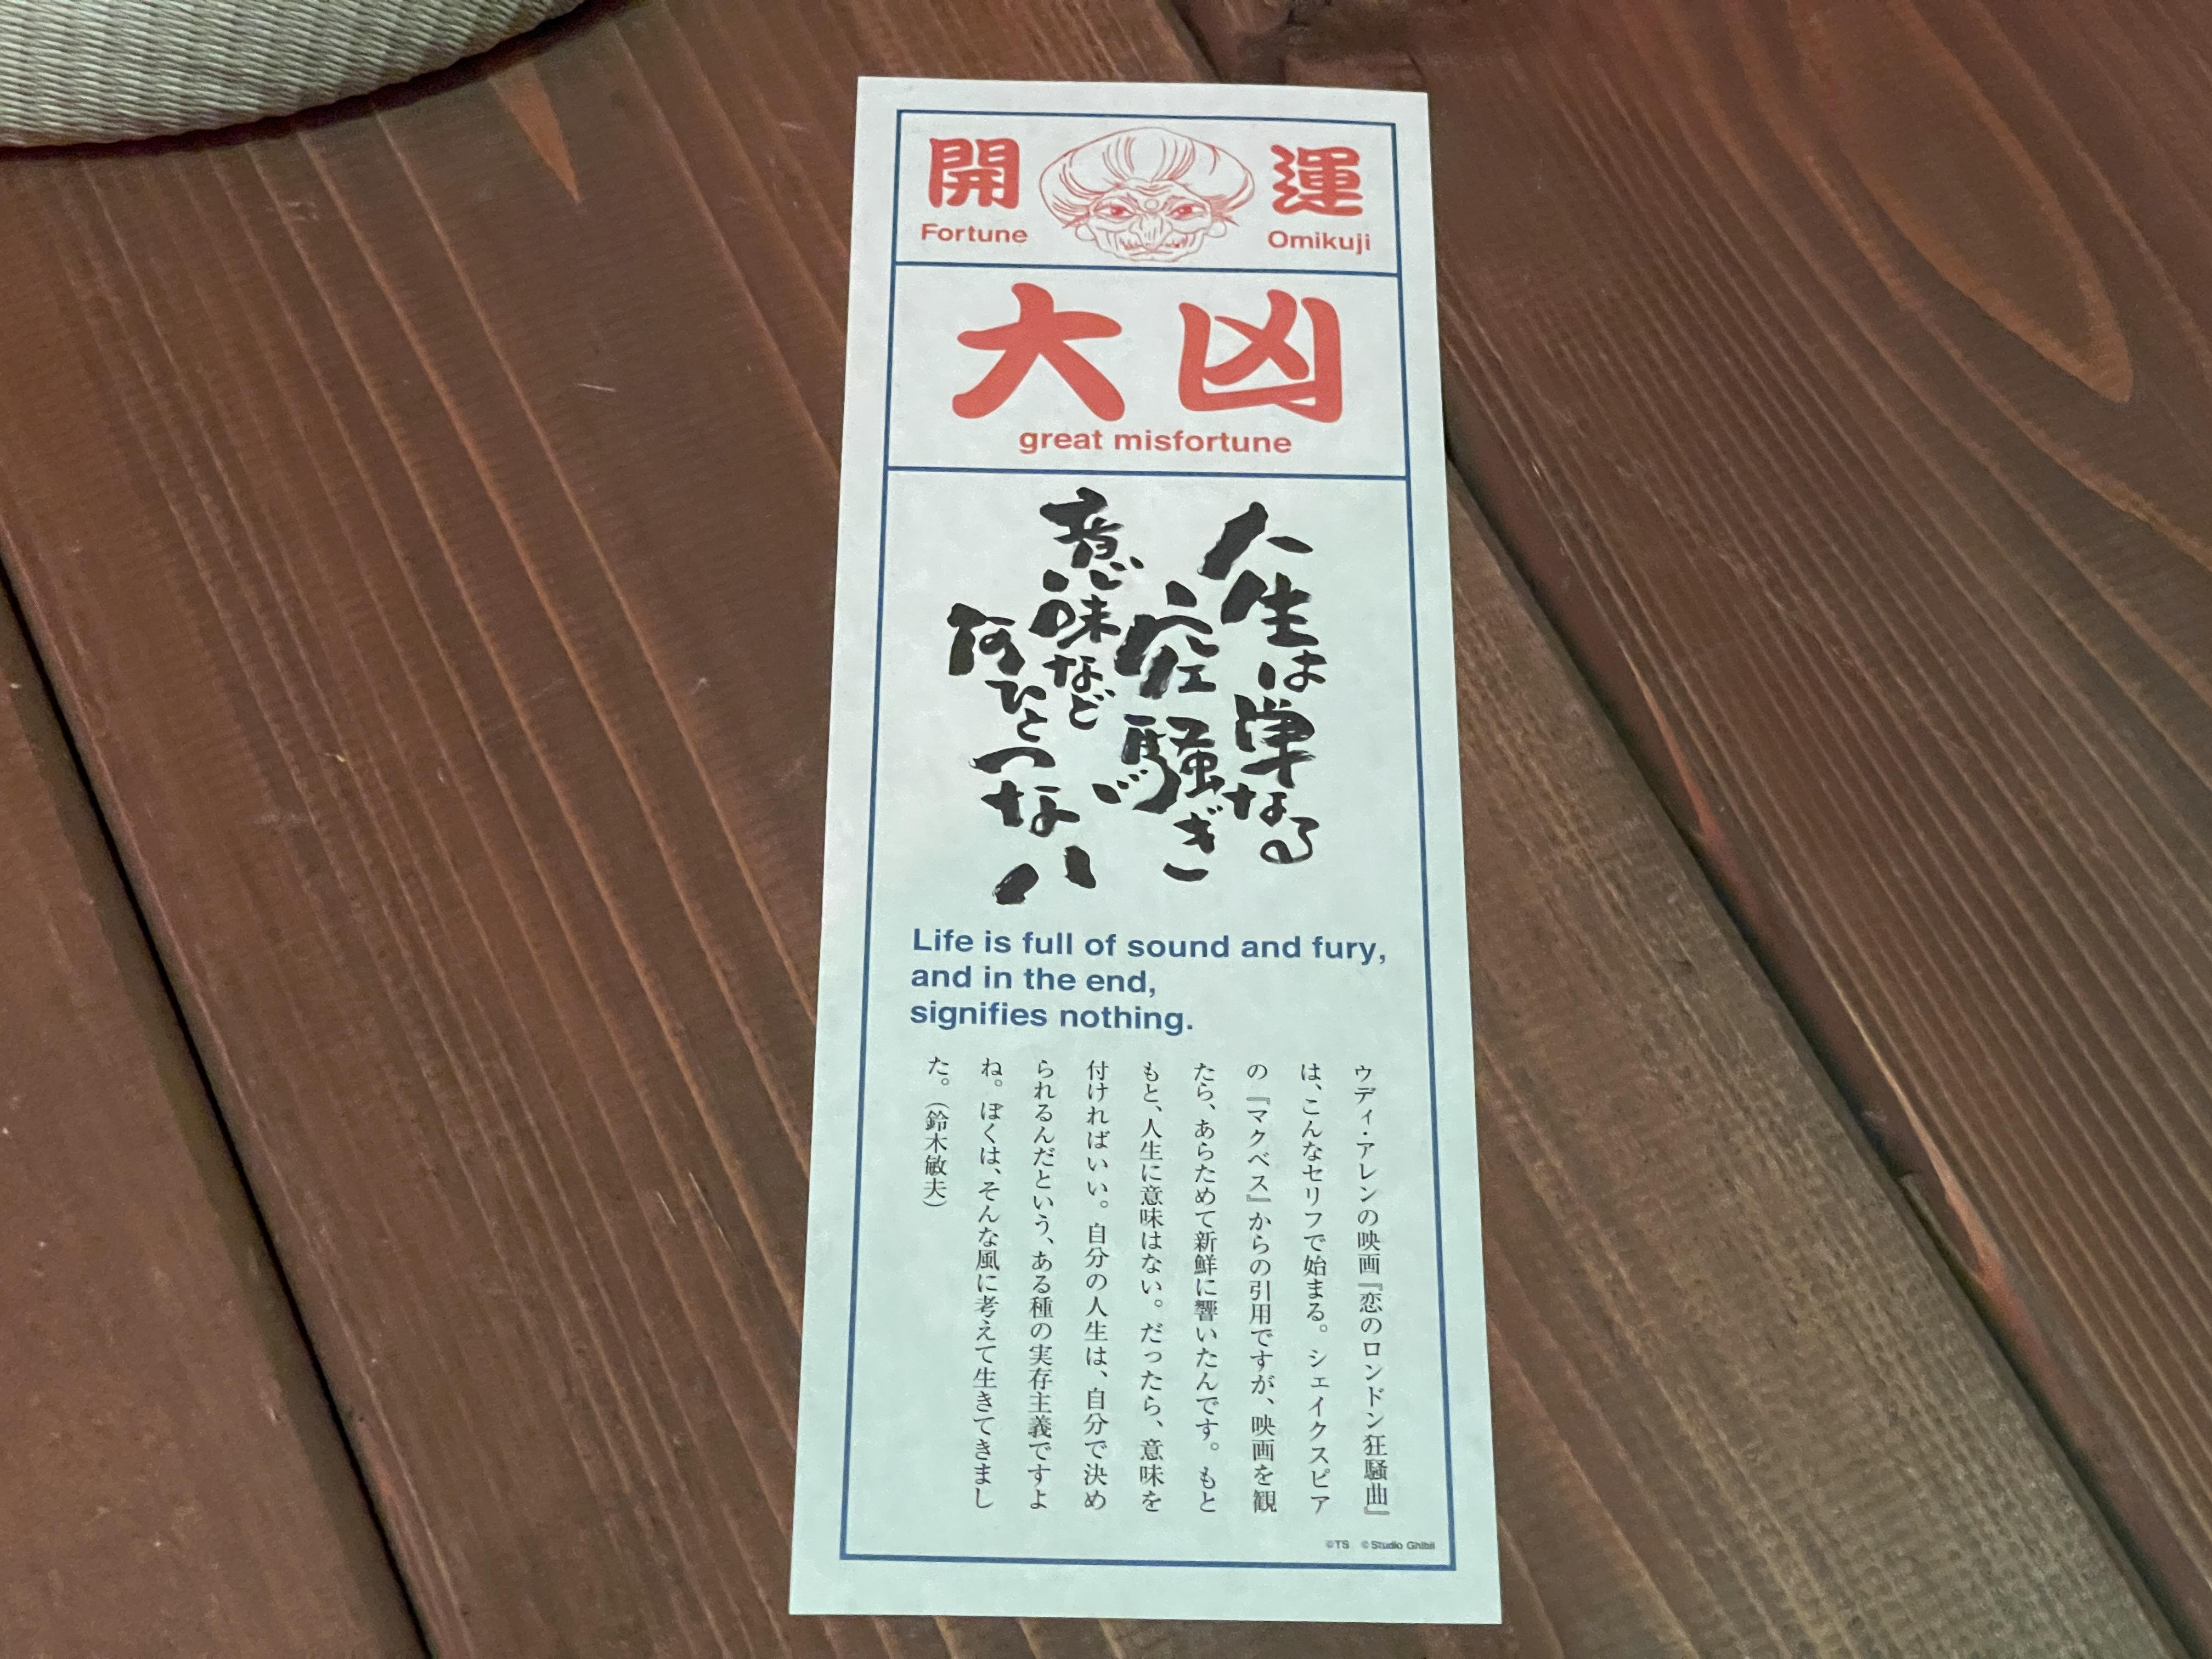 開運
Fortune Omikuji
大凶
great misfortune
人生は単なる
空騒ぎ
意味など
何ひとつない
Life is full of sound and fury,
and in the end,
signifies nothing.
ウディ・アレンの映画『恋のロンドン狂騒曲』
は、こんなセリフで始まる。シェイクスピア
の『マクベス』からの引用ですが、映画を観
たら、あらためて新鮮に響いたんです。もと
もと、人生に意味はない。だったら、意味を
付ければいい。自分の人生は、自分で決め
られるんだという、ある種の実存主義ですよ
ね。ぼくは、そんな風に考えて生きてきまし
た。（鈴木敏夫）
©TS ©Studio Ghibli